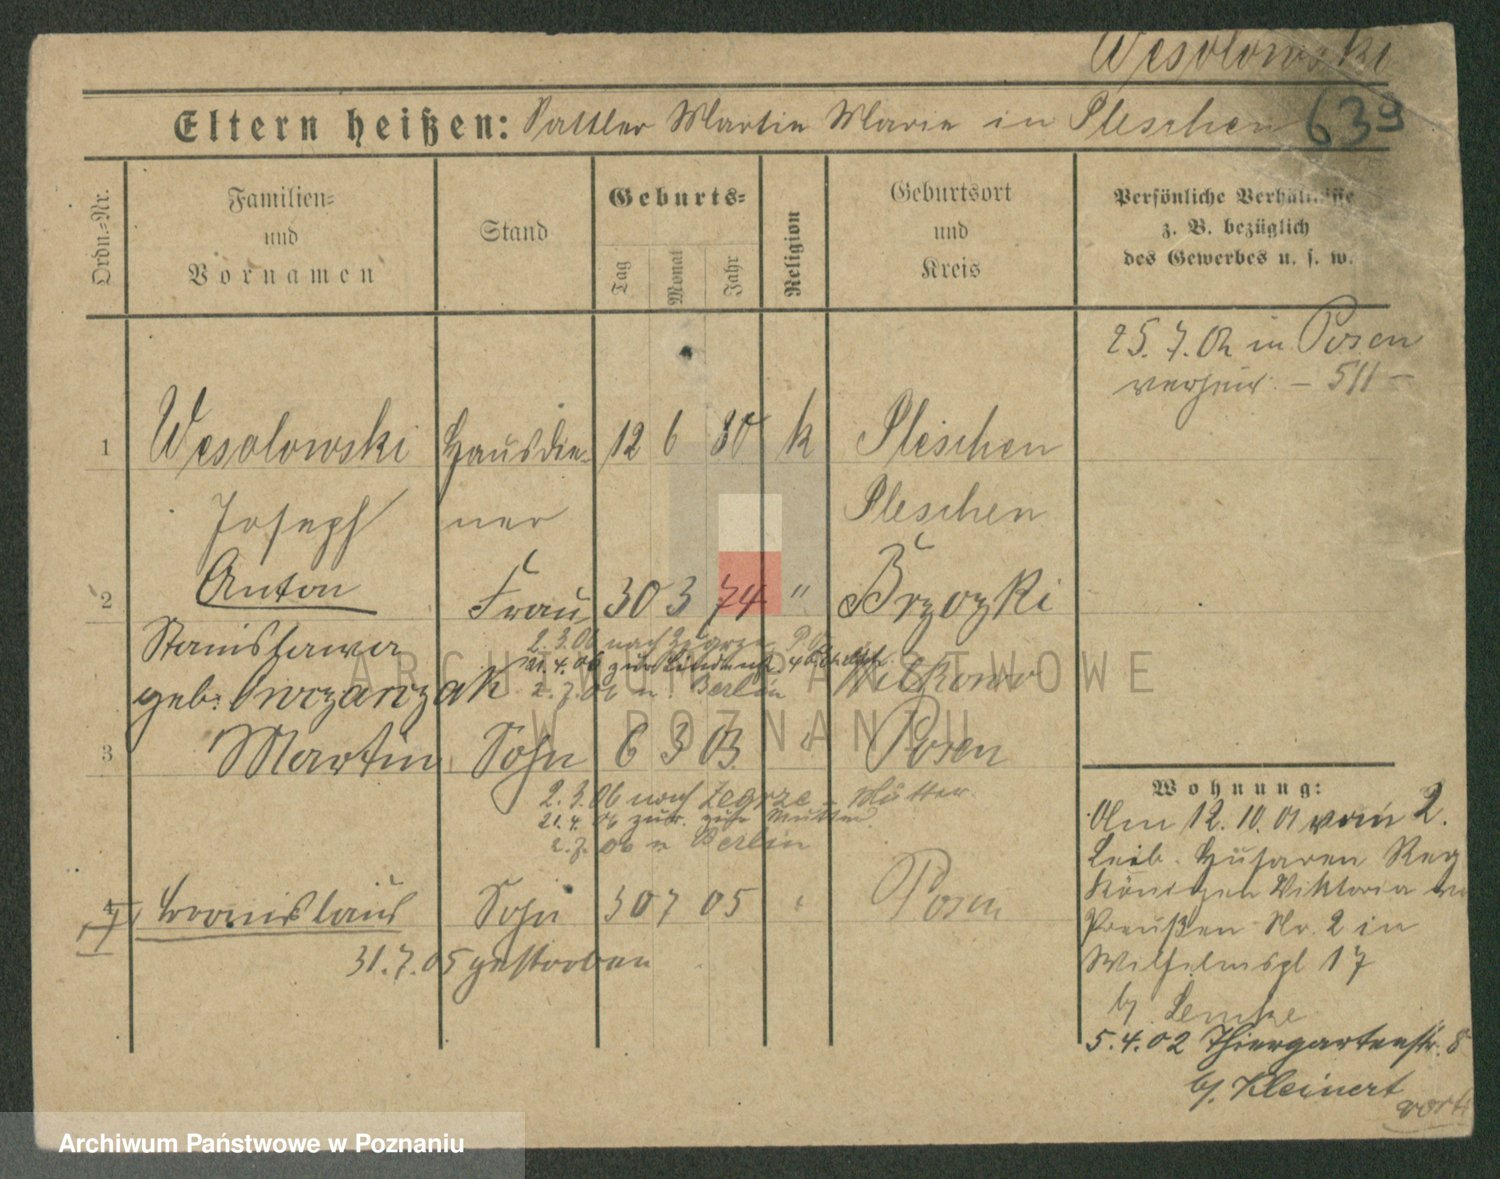 Wesolowski
Eltern heißen: Sattler Martin Marie in Pleschen 639
Ordn.-Nr.
Familien-
und
Vornamen
Stand
Geburts-
Tag
Monat
Jahr
Religion
Geburtsort
und
Kreis
Persönliche Verhältnisse
z. B. bezüglich
des Gewerbes u. s. w.
25. 7. 02 in Posen
verheir. – 511 –
1 Wesolowski Hausdie- 12 6 80 k Pleschen
Joseph ner Pleschen
Anton
2 Frau 30 3 74 " Brzozki
Stanislawa
2.3.06 nach Zegrze
21.4.06 zur
geb.
2.7.06 n. Berlin Witkowo
3 Martin Sohn 6 3 03 " Posen
2.3.06 nach Zegrze – Mutter
21.4.06 zur. zur Mutter
2.7.06 n Berlin
4 Bronislaus Sohn 30 7 05 " Posen
31.7.05 gestorben
Wohnung:
Am 12.10.01 vom 2.
Leib. Husaren Reg
Königin Viktoria v
Preußen Nr. 2 in
Wilhelmspl 17
b/ Lemke
5.4.02 Thiergartenstr. 8
b/. Kleinert
ARCHIWUM PAŃSTWOWE
W POZNANIU
Archiwum Państwowe w Poznaniu